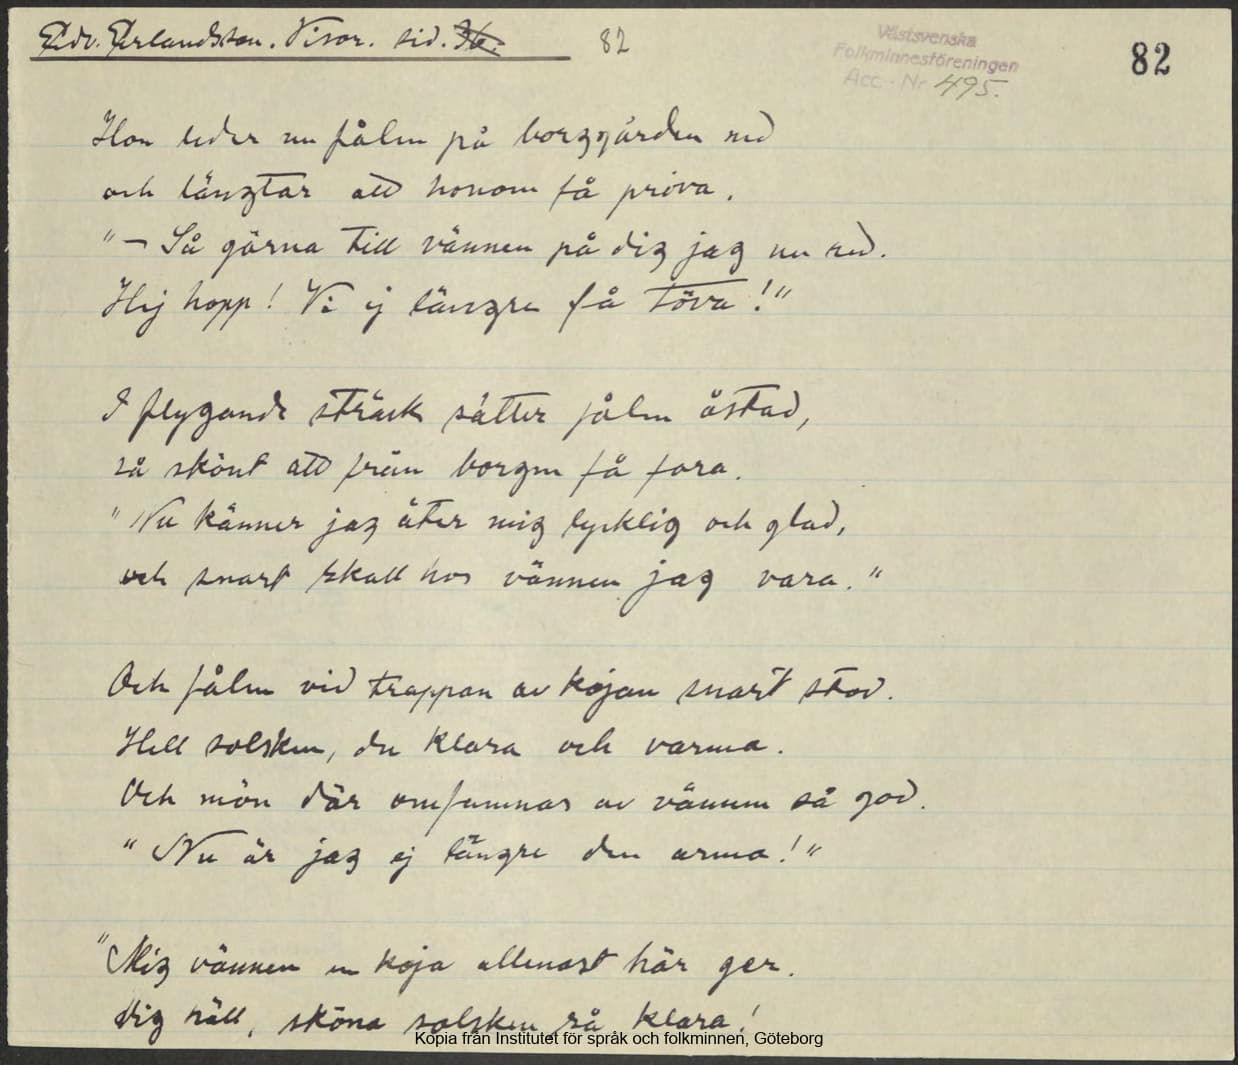 Edv. Erlandsson. Visor. sid. 36. 82
Västsvenska
Folkminnesföreningen
Acc-Nr 495.
82
Hon leder nu fålen på borggården ned
och längtar att honom få pröva.
"– Så gärna till vännen på dig jag nu red.
Hej hopp! Vi ej längre få töva!"
I flygande sträck sätter fålen åstad,
så skönt att från borgen få fara.
"Nu känner jag åter mig lycklig och glad,
och snart skall hos vännen jag vara."
Och fålen vid trappan av kojan snart stod.
Hell solsken, du klara och varma.
Och mön där omfamnas av vännen så god.
"Nu är jag ej längre den arma!"
"Mig vännen en koja allenast här ger.
Dig häll, sköna solsken så klara!
Kopia från Institutet för språk och folkminnen, Göteborg